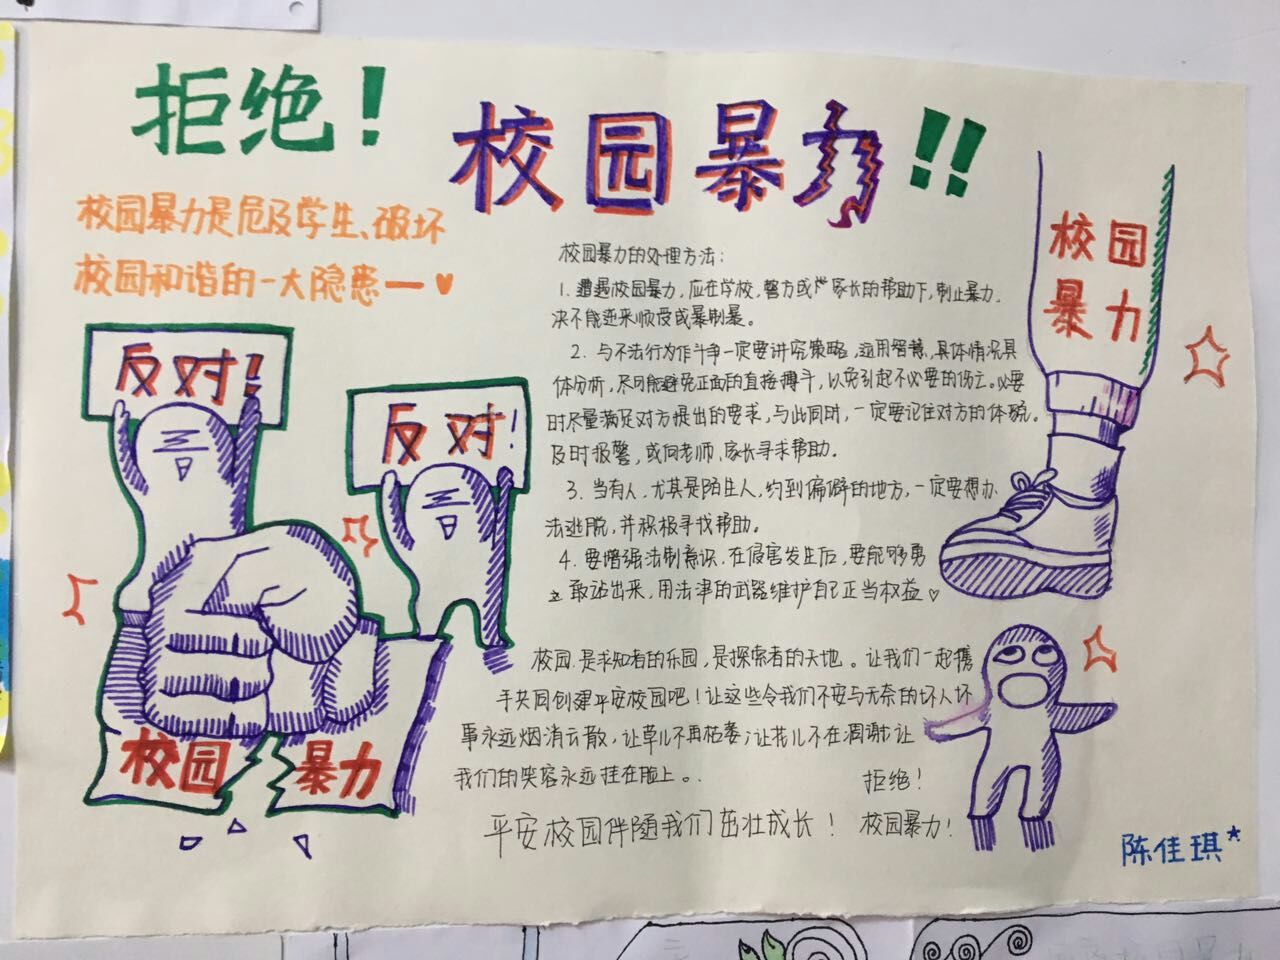 拒绝！
校园暴力!!
校园暴力是危及学生、破坏
校园和谐的一大隐患一♥
反对!
反对!
校园 暴力
校园
暴力
校园暴力的处理方法:
1. 遭遇校园暴力，应在学校，警方或 家长的帮助下，制止暴力。
决不能逆来顺受或暴制暴。
2. 与不法行为作斗争一定要讲究策略，运用智慧，具体情况具
体分析，尽可能避免正面的直接搏斗，以免引起不必要的伤亡。必要
时尽量满足对方提出的要求，与此同时，一定要记住对方的体貌。
及时报警，或向老师、家长寻求帮助。
3. 当有人，尤其是陌生人，约到偏僻的地方，一定要想办
法逃脱，并积极寻找帮助。
4. 要增强法制意识．在侵害发生后，要能够勇
敢站出来，用法津的武器维护自己正当权益♡
校园．是求知者的乐园，是探索者的天地。让我们一起携
手共同创建平安校园吧！让这些令我们不安与无奈的坏人坏
事永远烟消云散，让草儿不再枯萎；让花儿不在凋谢；让
我们的笑容永远挂在脸上。.
拒绝！
平安校园伴随我们茁壮成长！
校园暴力！
陈佳琪*